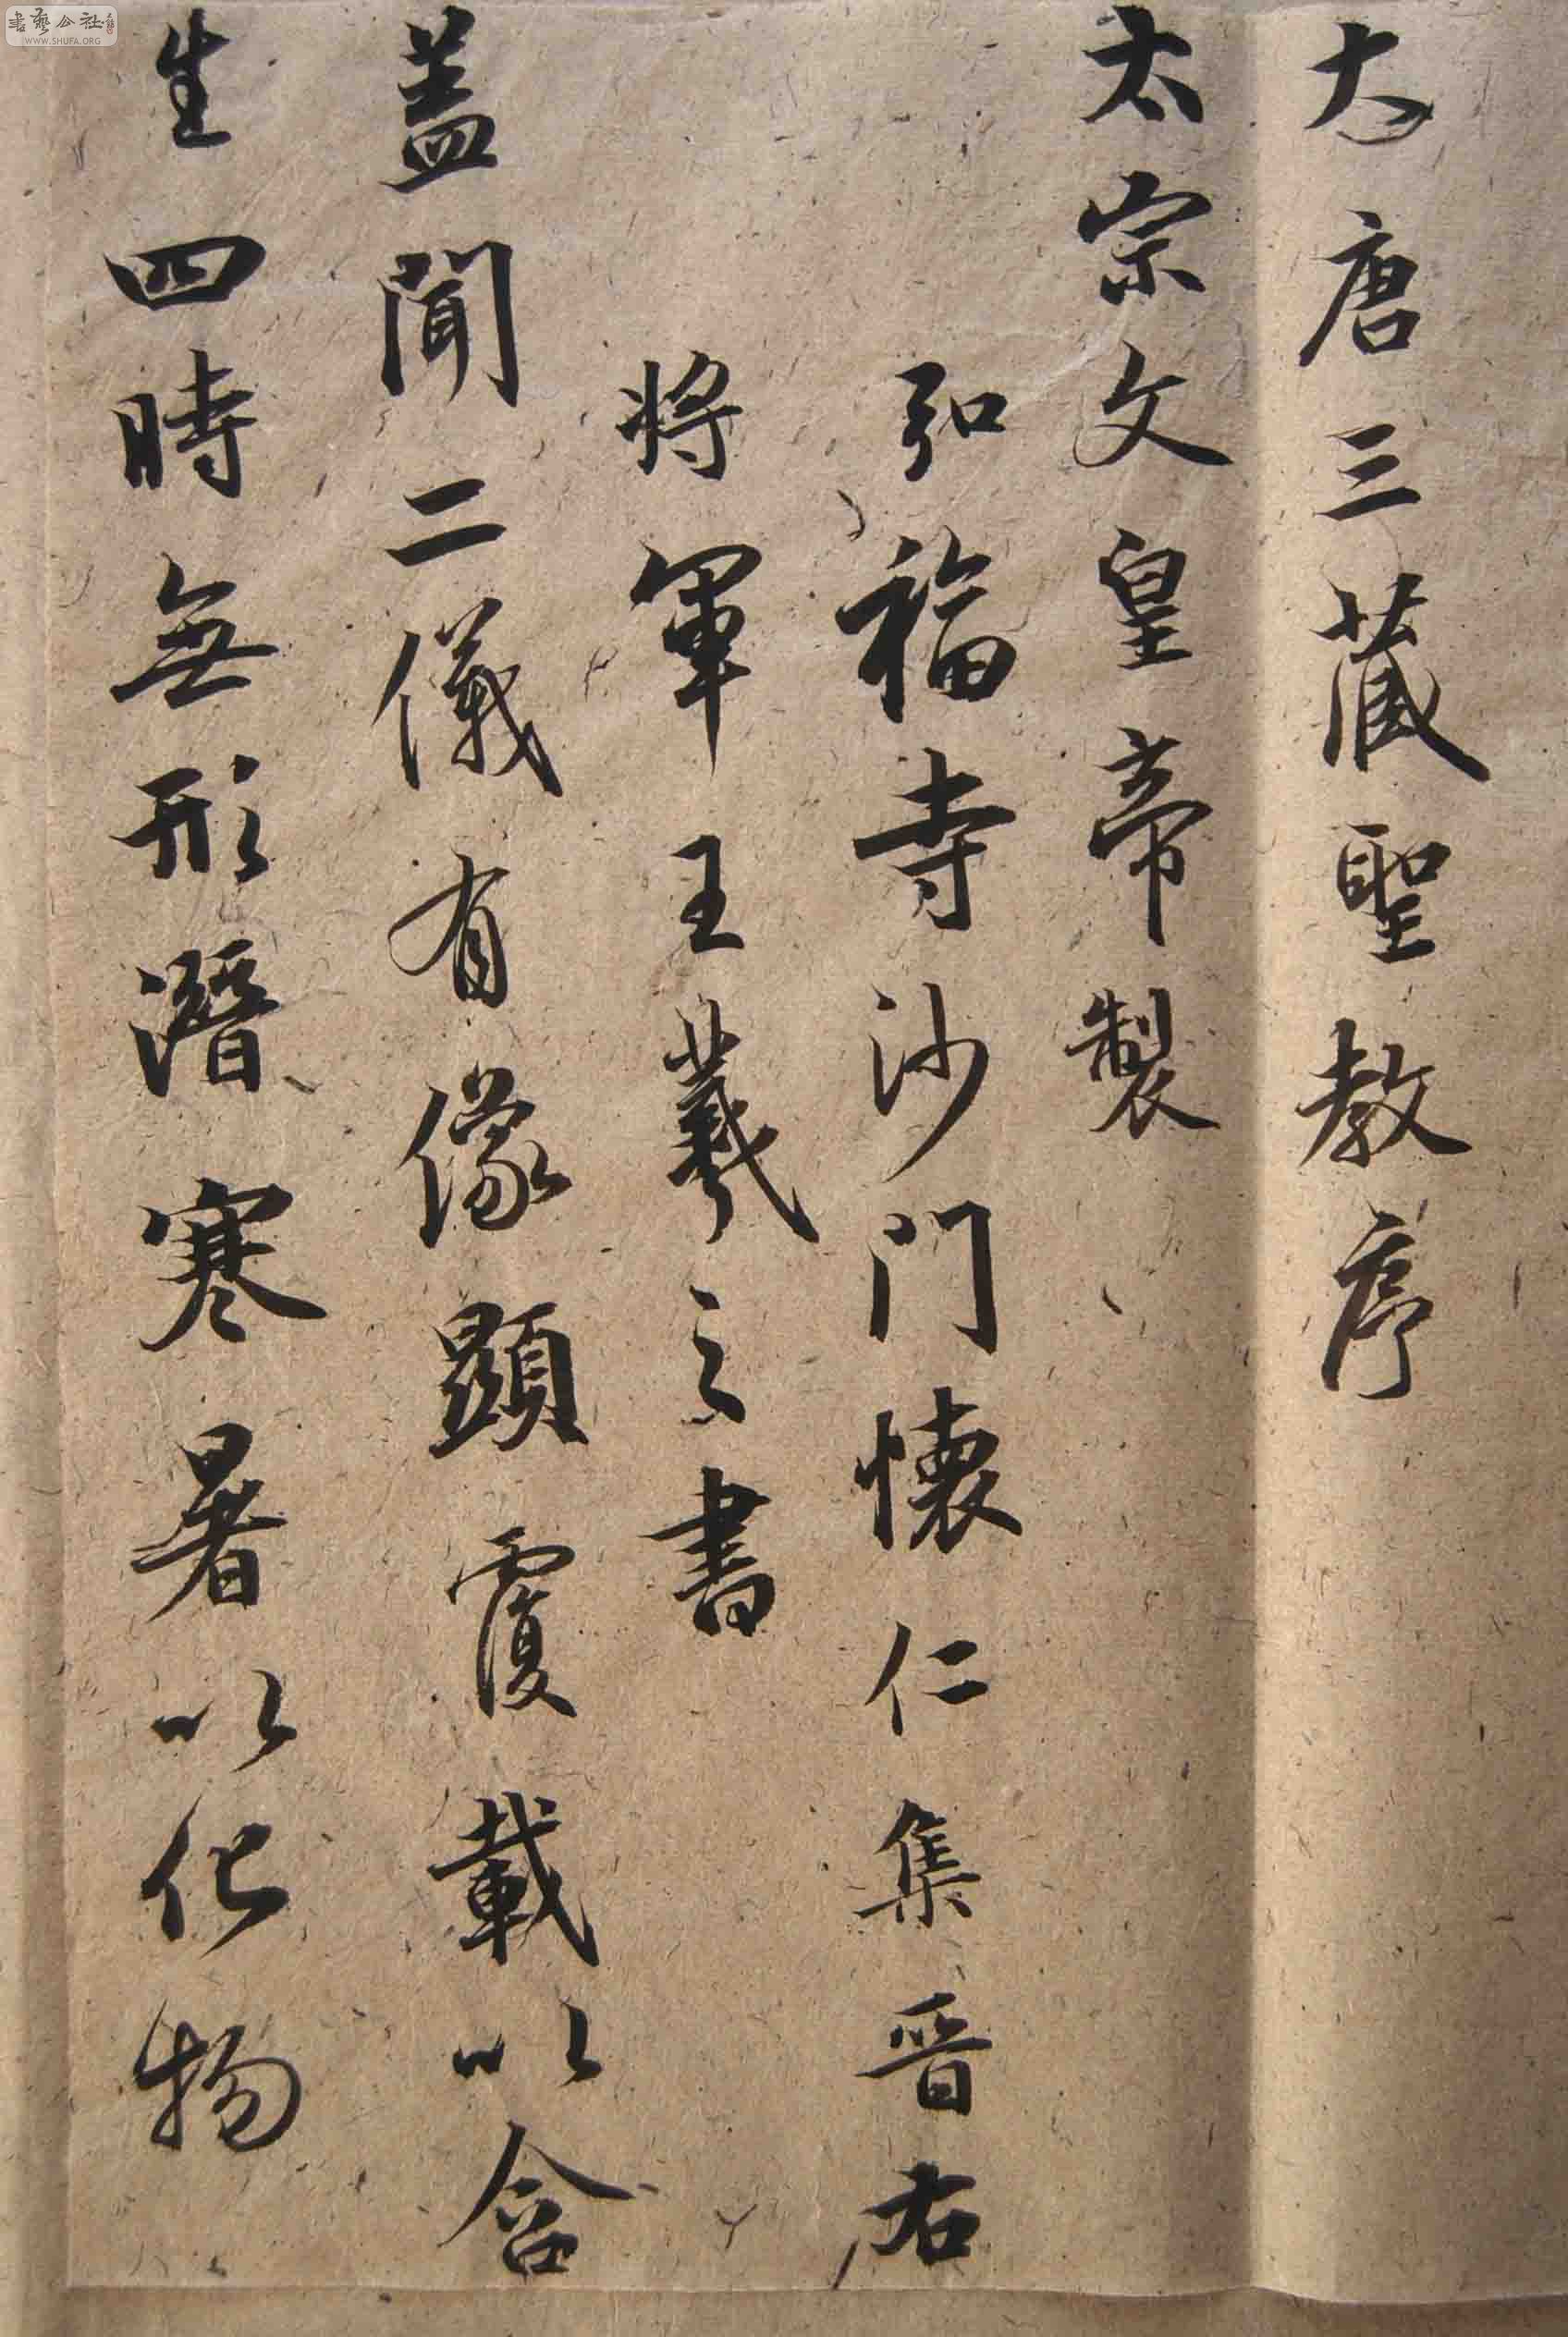 大唐三藏聖教序
太宗文皇帝製
弘福寺沙门懷仁集晋右
將軍王羲之書
蓋聞二儀有像顯覆載以含
生四時無形潛寒暑以化物
書藝公社
WWW.SHUFA.ORG